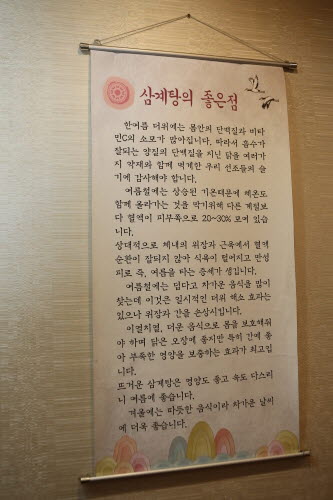 삼계탕의 좋은점
한여름 더위에는 몸안의 단백질과 비타
민C의 소모가 많아집니다. 따라서 흡수가
잘되는 양질의 단백질을 지닌 닭을 여러가
지 약재와 함께 먹게한 우리 선조들의 슬
기에 감사해야 합니다.
여름철에는 상승된 기온때문에 체온도
함께 올라가는 것을 막기위해 다른 계절보
다 혈액이 피부쪽으로 20~30% 모여 있습
니다.
상대적으로 체내의 위장과 근육에서 혈액
순환이 잘되지 않아 식욕이 떨어지고 만성
피로 즉, 여름을 타는 증세가 생깁니다.
여름철에는 덥다고 차가운 음식을 많이
찾는데 이것은 일시적인 더위 해소 효과는
있으나 위장과 간을 손상시킵니다.
이열치열, 더운 음식으로 몸을 보호해줘
야 하며 닭은 오장에 좋지만 특히 간에 좋
아 부족한 영양을 보충하는 효과가 최고입
니다.
뜨거운 삼계탕은 영양도 좋고 속도 다스리
니 여름에 좋습니다.
겨울에는 따뜻한 음식이라 차가운 날씨
에 더욱 좋습니다.